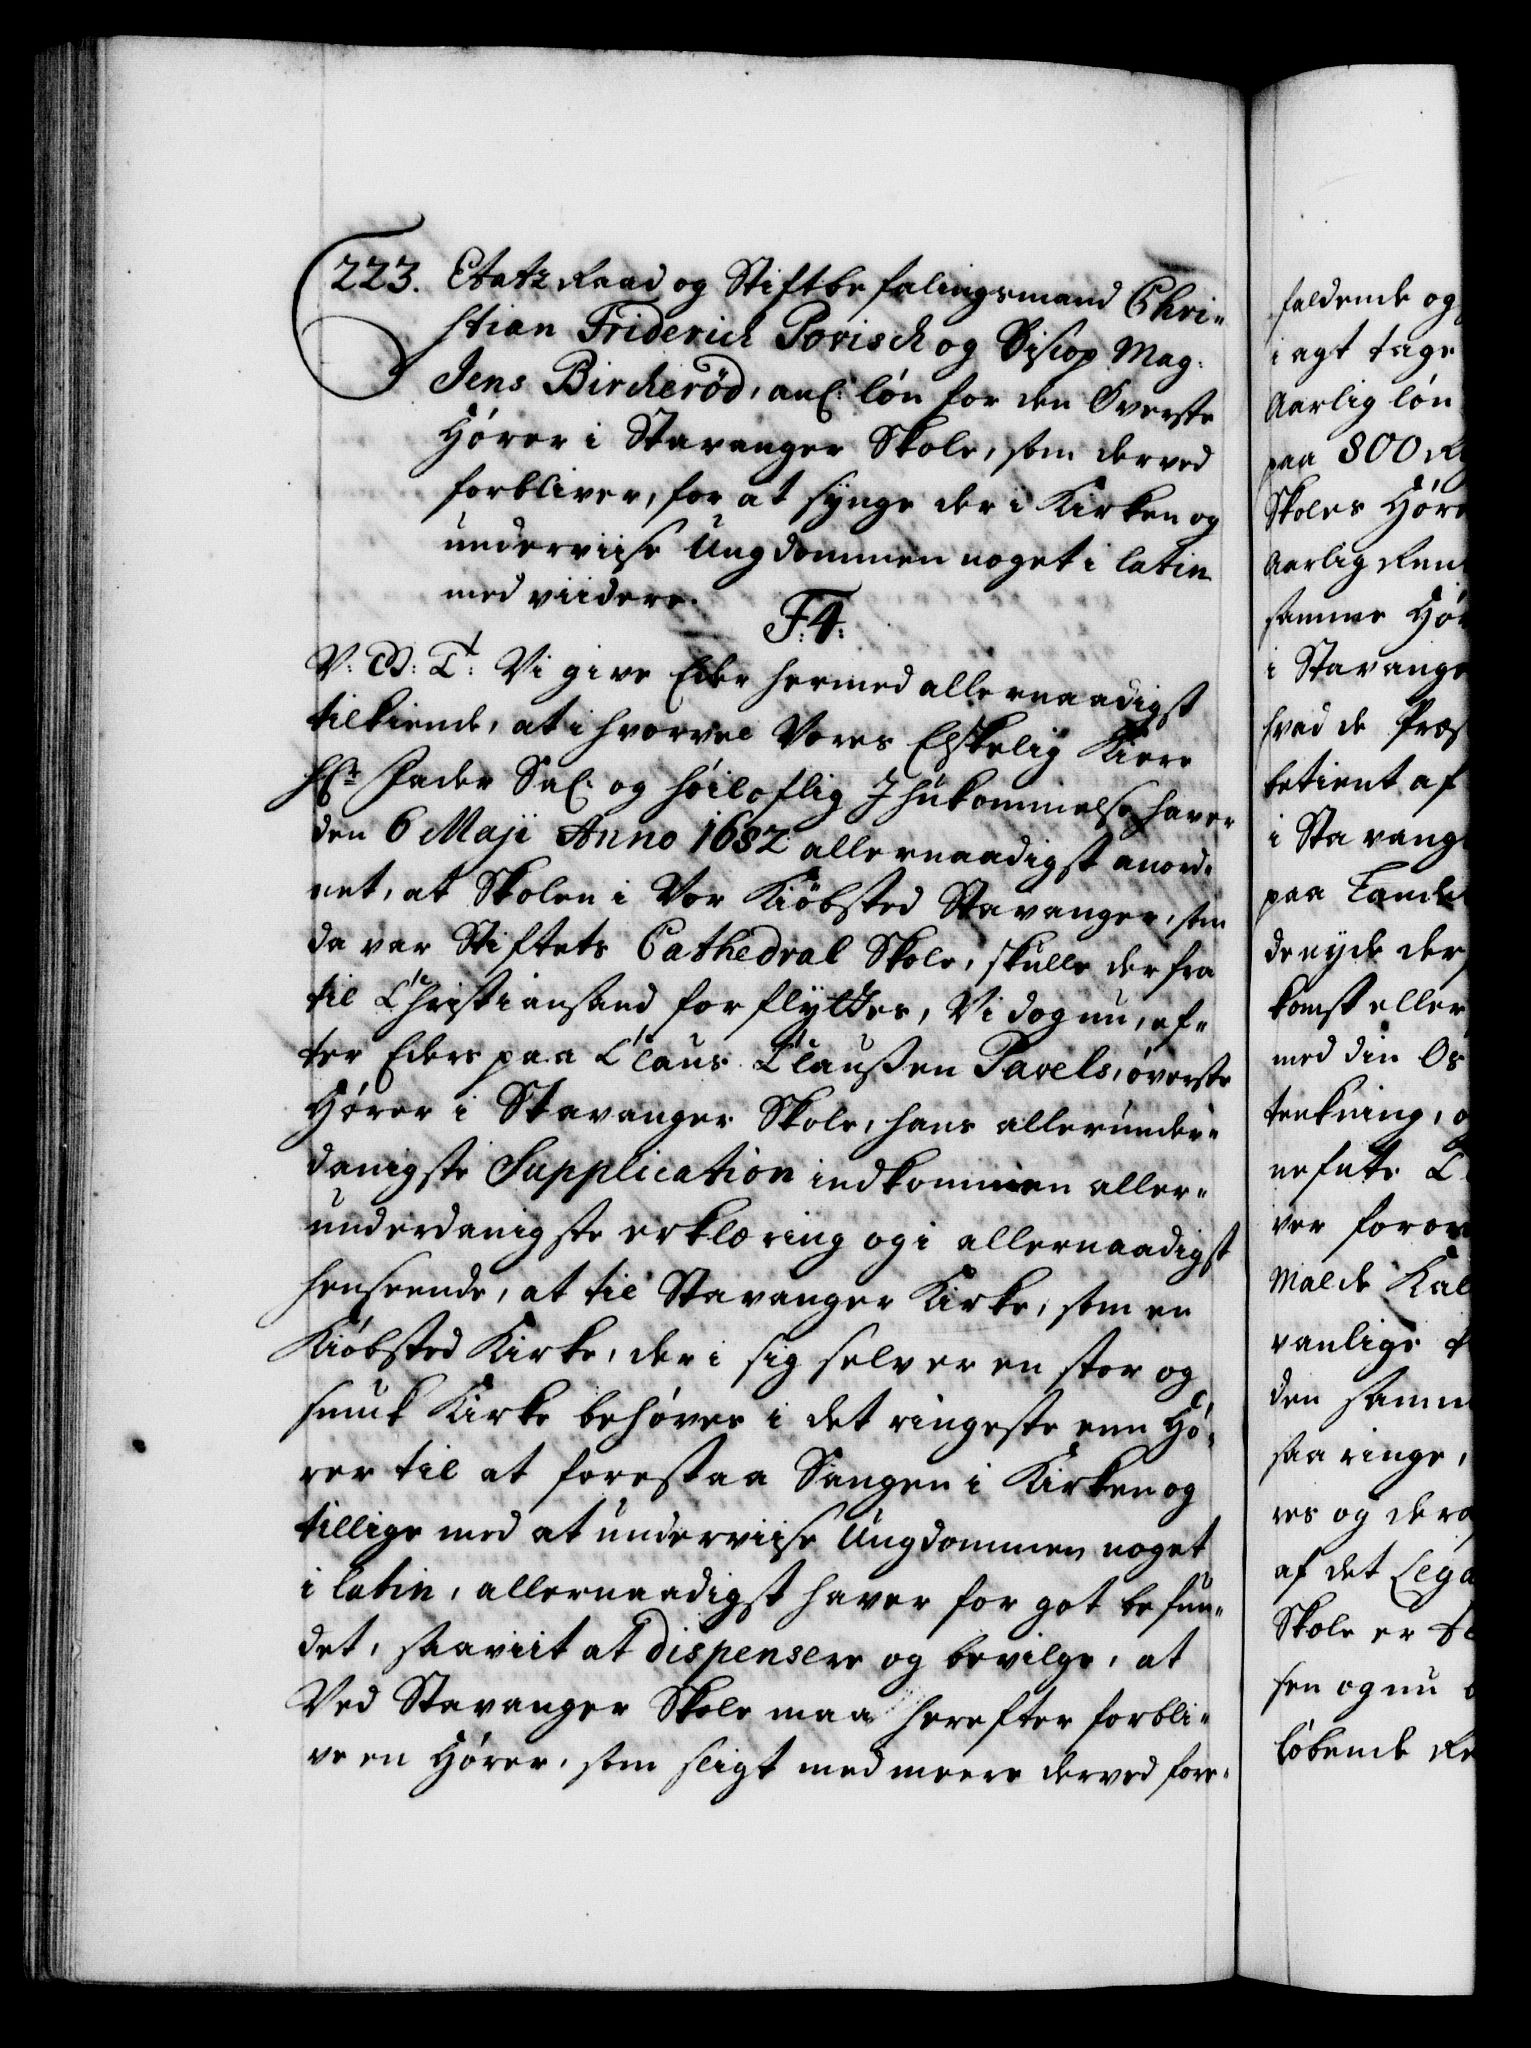 223. Etatz Raad og Stiftbefalingsmand Chri-
stian Friderich Povisch og Biscop Mag:
Jens Bircherød, anl: løn for den Øverste
Hører i Stavanger Skole, som derved
forbliver, for at synge der i Kirken og
underviise Ungdommen noget i latin
med viidere.
F:4:
V: G: T: Vi give Eder hermed allernaadigst
tilkiende, at i hvorvel Vores Elskelig Kiere
Hr Fader Sal: og høiloflig Ihukommelse haver
den 6 Maji Anno 1682 allernaadigst anord-
net, at Skolen i Vor Kiøbsted Stavanger, som
da var Stiftets Cathedral Skole, skulle derfra
til Christiansand forflyttes, Vi dog nu, ef-
ter Eders paa Claus Claussen Pavels, øverste
Hører i Stavanger Skole, hans allerunder-
danigste Supplication indkommen aller-
underdanigste erklæring og i allernaadigst
henseende, at til Stavanger Kirke, som en
Kiøbsted Kirke, der i sig selv er en stor og
smuk Kirke behøves i det ringeste enn Hø-
rer til at forestaa Sangen i Kirken og
tillige med at underviise Ungdommen noget
i latin, allernaadigst haver for got befun-
det, saaviit at dispensere og bevilge, at
Ved Stavanger Skole maa herefter forbli-
ve en Hører, som sligt med meere derved fore-
faldende og
i agt tage
Aarlig løn
paa 800 R
Skoles Høre
Aarlig Ren
samme Hø
i Stavange
hvad de Præs
betient af
i Stavang
paa Lande
de nyde der
komst eller
med din
tenkning, o
nefnte C
ver foror
Malde Kal
vanlige
den samm
saa ringe,
res og der
af det Lega
Skole er
sen og nu
løbende Re